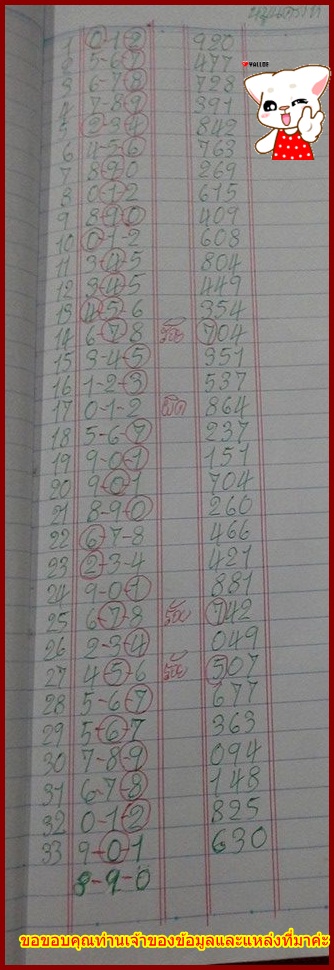 1 0-1-2 920
2 5-6-7 477
3 6-7-8 728
4 7-8-9 391
5 2-3-4 842
6 4-5-6 763
7 8-9-0 269
8 0-1-2 615
9 8-9-0 409
10 0-1-2 608
11 3-4-5 804
12 3-4-5 449
13 4-5-6 354
14 6-7-8 ร้อย 704
15 3-4-5 951
16 1-2-3 537
17 0-1-2 ผิด 864
18 5-6-7 237
19 9-0-1 151
20 9-0-1 704
21 8-9-0 260
22 6-7-8 466
23 2-3-4 421
24 9-0-1 881
25 6-7-8 ร้อย 742
26 2-3-4 049
27 4-5-6 ร้อย 507
28 5-6-7 677
29 5-6-7 363
30 7-8-9 094
31 6-7-8 148
32 0-1-2 825
33 9-0-1 630
8-9-0
ขอขอบคุณท่านเจ้าของข้อมูลและแหล่งที่มาค่ะ